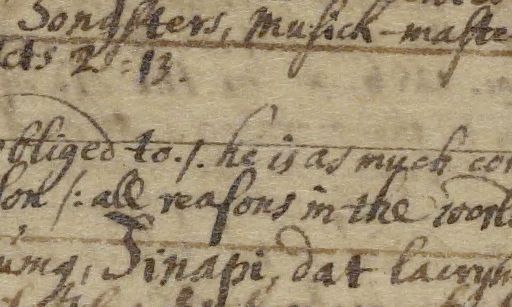 Songsters, Musick-maste
cts 2: 13.
bliged to. /. he is as much con
son /: all reasons in the worl
Sinapi, dat lacrym